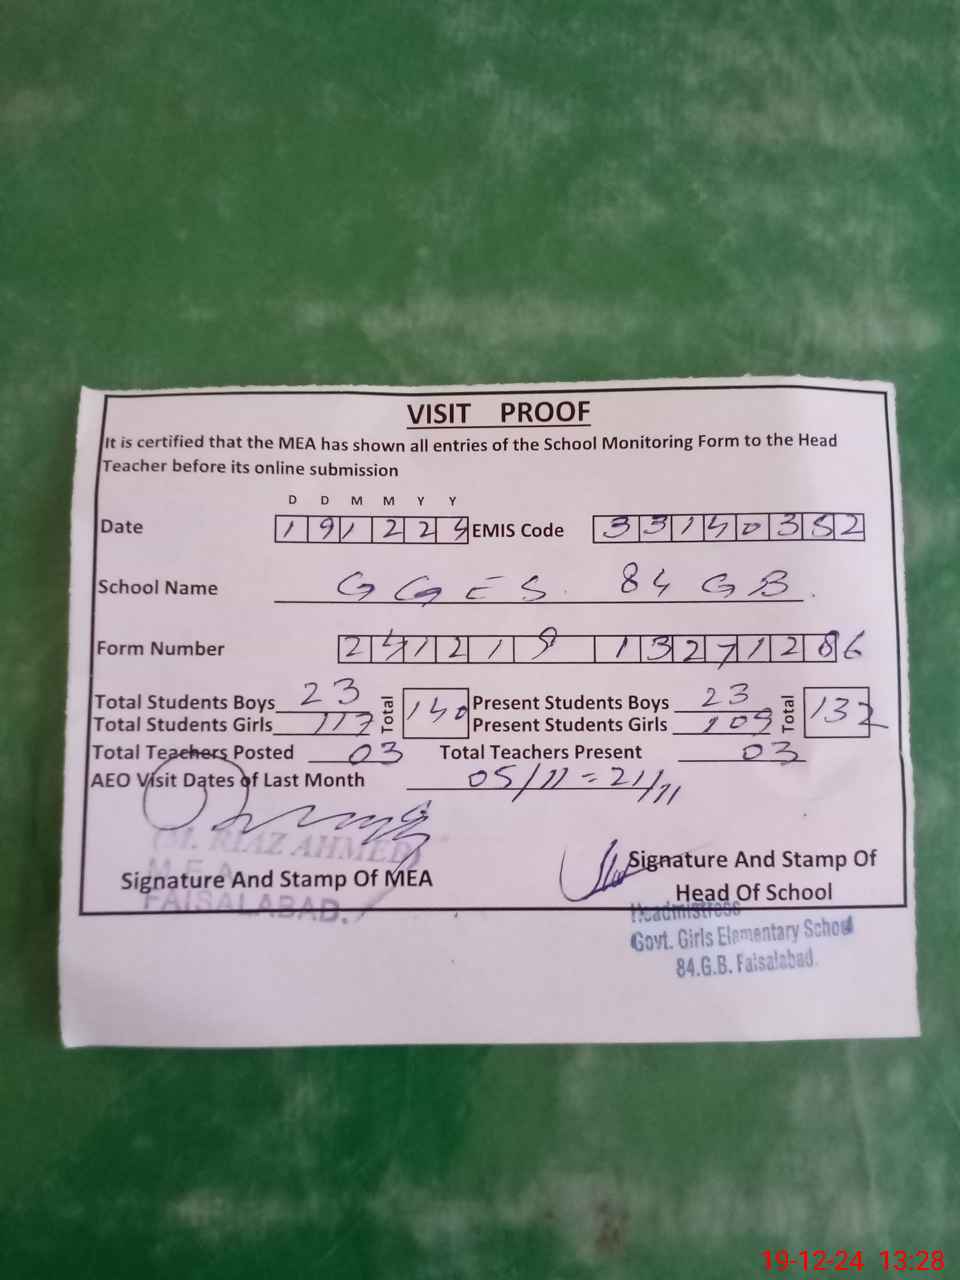 VISIT PROOF
It is certified that the MEA has shown all entries of the School Monitoring Form to the Head
Teacher before its online submission
D D M M Y Y
Date 191224 EMIS Code 33140352
School Name GGES. 84 GB.
Form Number 241219 13271286
Total Students Boys 23 Total 140 Present Students Boys 23 Total 132
Total Students Girls 117 Present Students Girls 109
Total Teachers Posted 03 Total Teachers Present 03
AEO Visit Dates of Last Month 05/11 = 21/11
(M. RIAZ AHMED)
M.E.A
Signature And Stamp Of MEA
FAISALABAD.
Signature And Stamp Of
Head Of School
Headmistress
Govt. Girls Elementary School
84.G.B. Faisalabad.
19-12-24 13:28